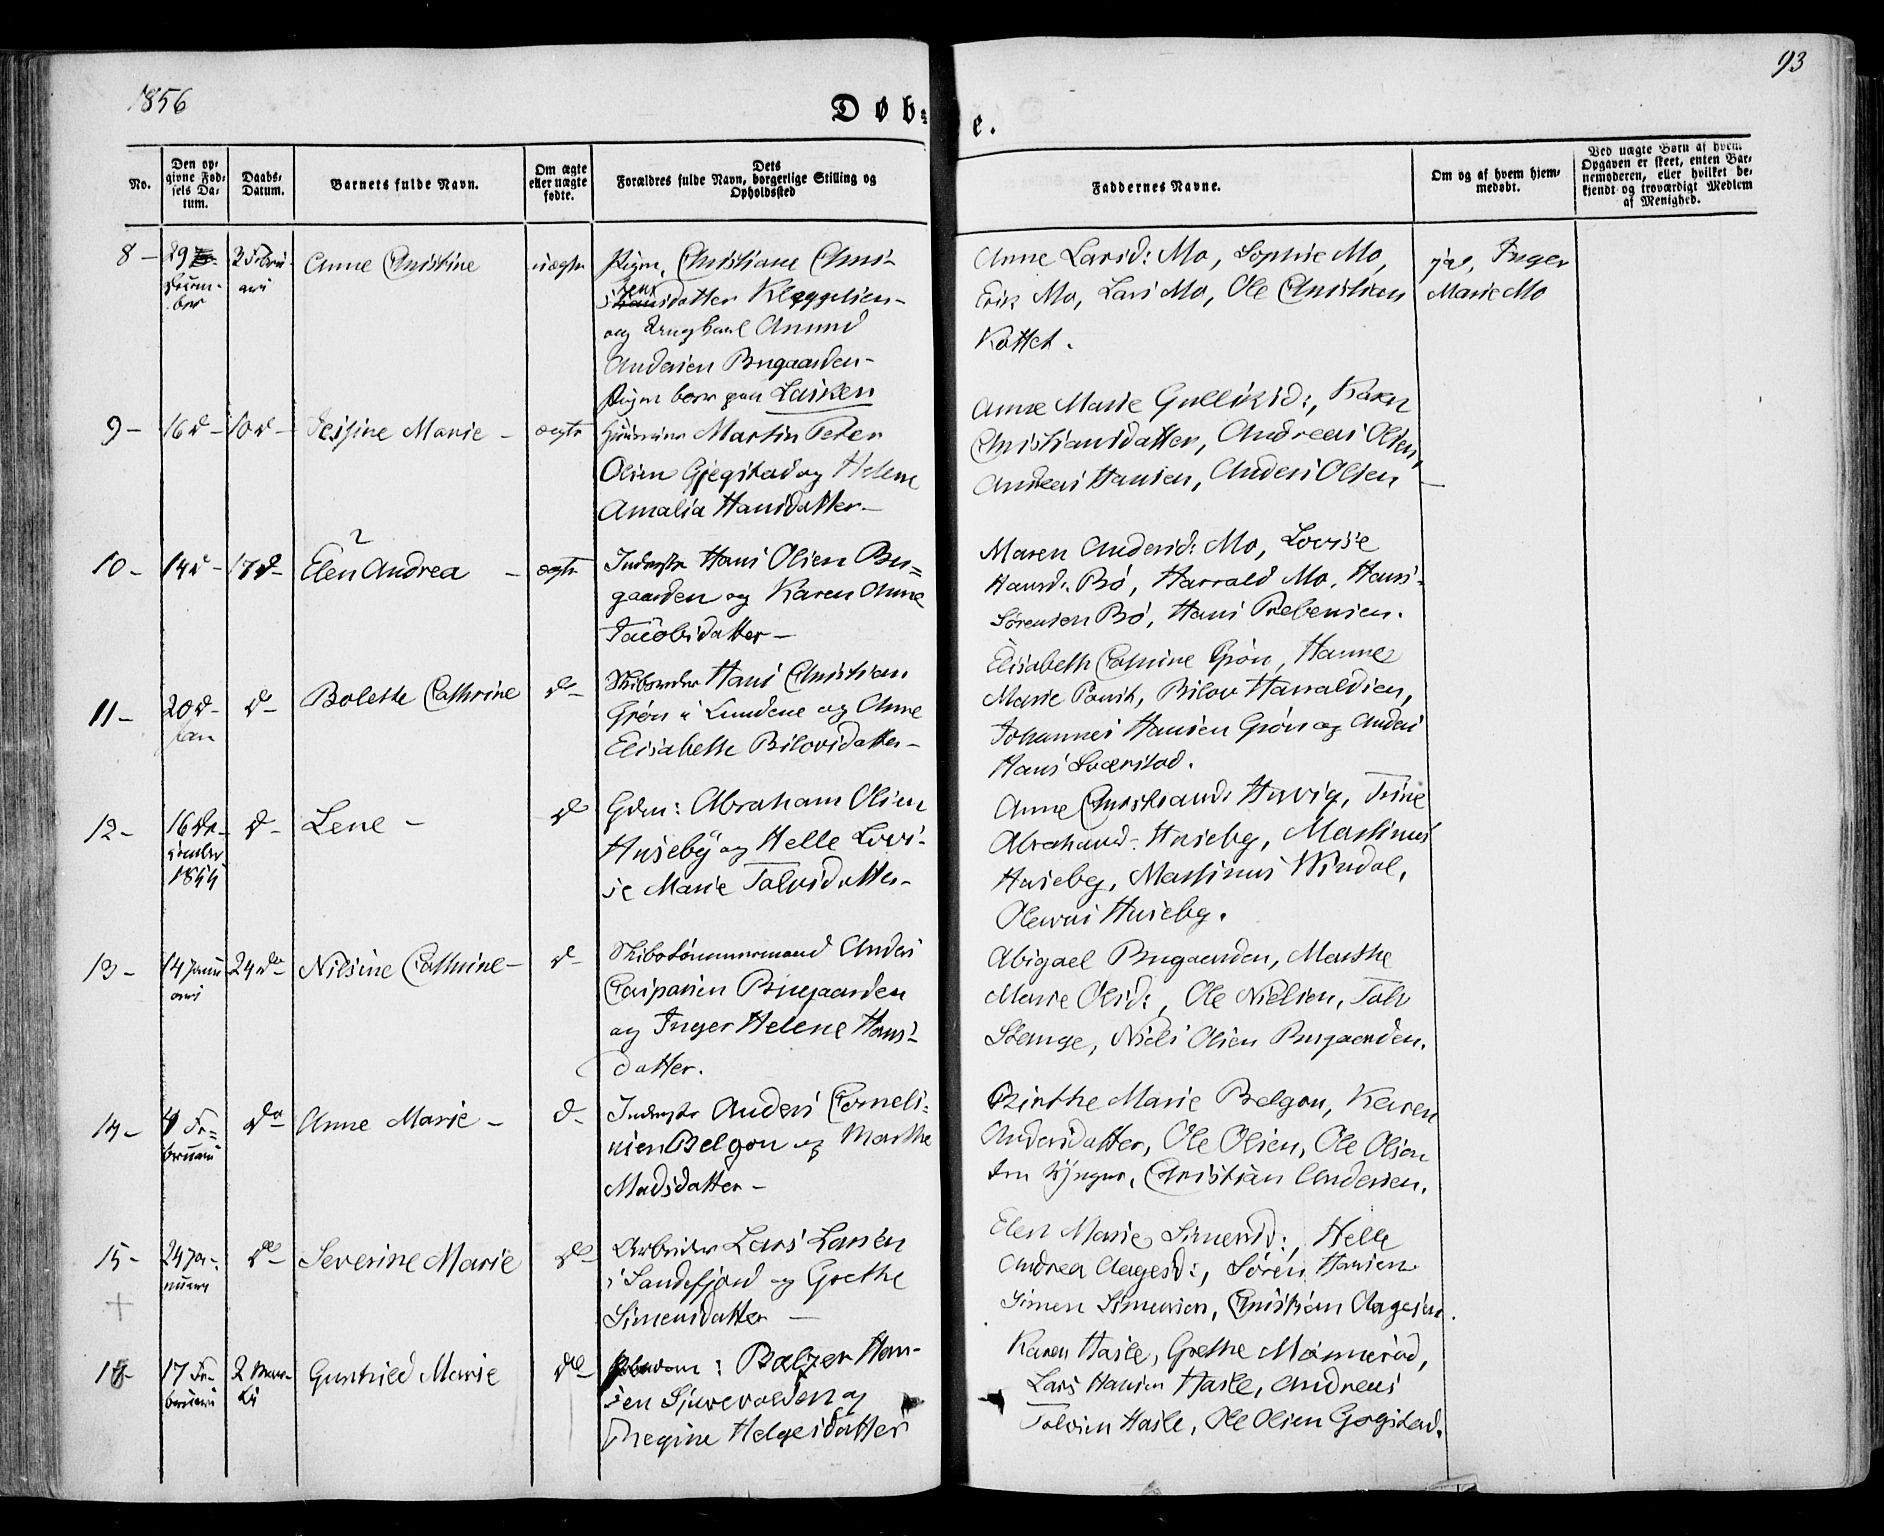 1856
93
Døb-
e.
No.
Den op-
givne Fød-
sels Da-
tum.
Daabs-
Datum.
Barnets fulde Navn.
Om ægte
eller uægte
fødte.
Dets
Forældres fulde Navn, borgerlige Stilling og
Opholdssted
Faddernes Navne.
Om og af hvem hjem-
medøbt.
Ved uægte Børn af hvem
Opgaven er skeet, enten Bar-
nemoderen, eller hvilket be-
kjendt og troværdigt Medlem
af Menighed.
8 - 29 Decem-
ber
2 Febru-
ari
Anne Christine
uægte
Pigen, Christiane Chris-
datter Kleggelsen-
og Ungkarl Amund
Andersen Bugaarden-
Pigen boer paa Lasken
Anne Larsd: Mo, Sophie Mo,
Erik Mo, Lars Mo, Ole Christian
Kattet.
ja, Inger
Marie Mo
9 - 16 d - 10 d - Jessine Marie - ægte
Martin Peter
Olsen Gjegstad og Helene
Amalia Hansdatter -
Anne Marie Gulliksd:, Karen
Christiansdatter, Andreas Olsen,
Andreas Hansen, Anders Olsen -
10 - 14 d - 17 d - Elen Andrea - ægte
Inderste Hans Olsen Bu=
gaarden og Karen Anne
Jacobsdatter -
Maren Andersd: Mo, Lovise
Hansd: Bø, Harrald Mo, Hans
Sørensen Bø, Hans Prebensen.
11 - 20 d -
Jan
d - Bolette Cathrine d -
Skibsreder Hans Christian
Grøn i Lundene og Anne
Elisabeth Bilovsdatter -
Elisabeth Cathrine Grøn, Hanne
Marie Bilov Harraldsen,
Johannes Hansen Grøn og Anders
Hans Sverstad.
12 - 16 De-
cember
1855
d - Lene - d
Gdm: Abraham Olsen
Huseby og Helle Lovi-
se Marie Talvsdatter -
Anne Christiansd: Hervig, Trine
Abrahamsd: Huseby, Martinus
Huseby, Martinus Windal,
Olavus Huseby.
13 - 14 Janu-
ari
24 do Nilsine Cathrine - d -
Skibstømmermand Anders
Caspersen Bugaarden
og Inger Helene Hans-
datter.
Abigael Bugaarden, Marthe
Marie Olsd:, Ole Nielsen, Talv
Stange, Niels Olsen Bugaarden.
14 - 4 Fe-
bruari
do Anne Marie - d -
Inderste Anders Corneli-
usen Belgon og Marthe
Madsdatter -
Birthe Marie Belgon, Karen
Andersdatter, Ole Olsen, Ole Olsen
den yngre, Christian Andersen.
15 - 24 Ja-
nuari
+
do Severine Marie do
Arbeider Lars Larsen
i Sandefjord og Grethe
Simensdatter -
Elen Marie Simensd:, Helle
Andrea Aagesd:, Søren Hansen
Simen Simensen, Christian Aagesen.
16 - 17 Fe-
bruari
2 Mar-
ts
Gunhild Marie do
Balzer Han-
sen Sjuevolden og
Thregine Helgesdatter
Karen Hasle, Grethe Mønnerød,
Lars Hansen Hasle, Andreas
Talvsen Hasle, Ole Olsen Gogstad.